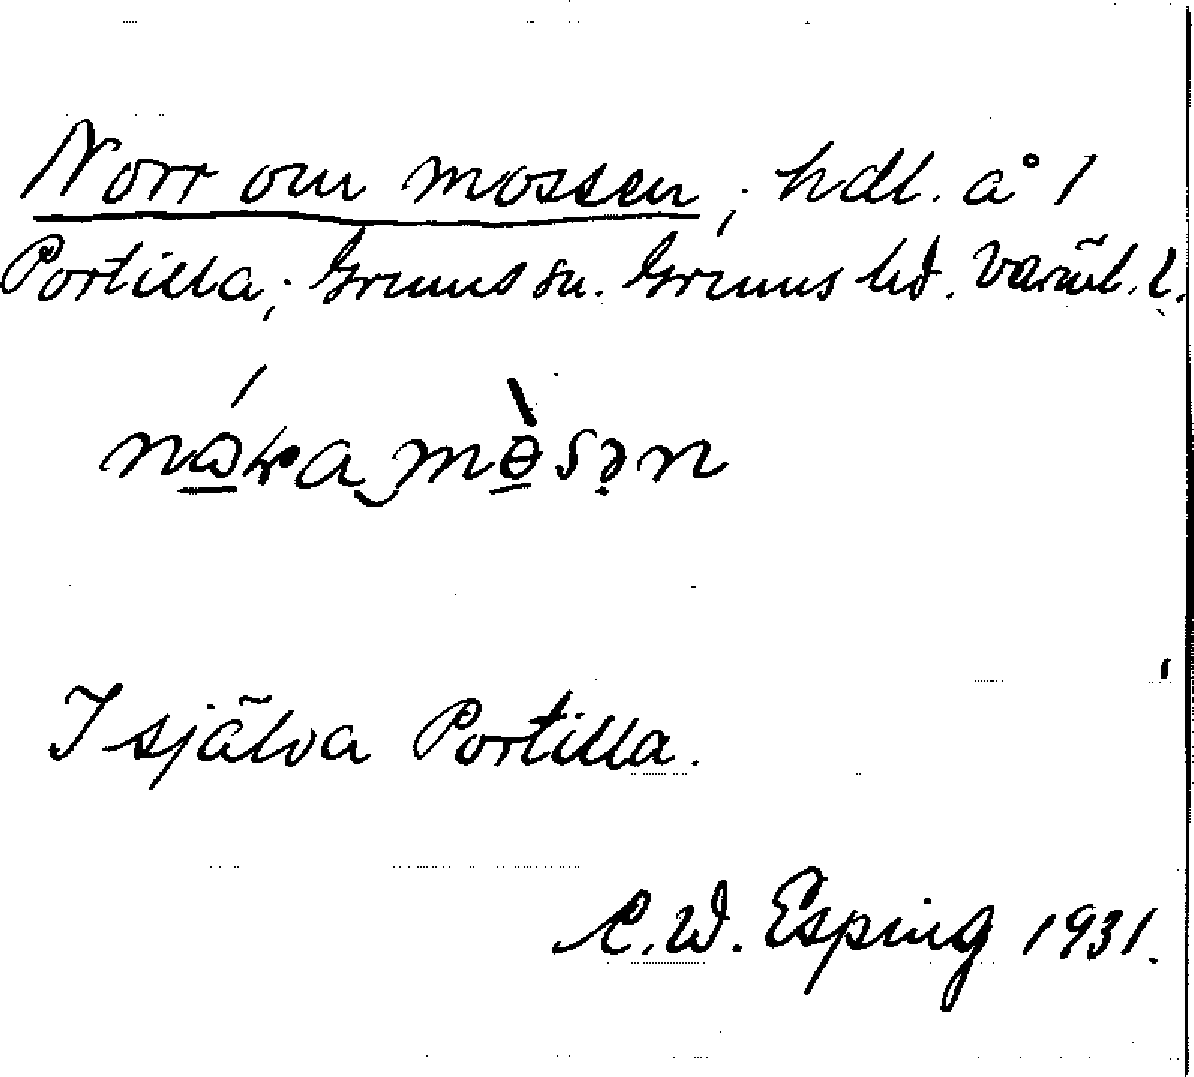 Norr om mossen; hdl. å 1
Portilla; Grimms sn. Grimms hd. Värml. l.
I själva Portilla.
C. W. Esping 1931.